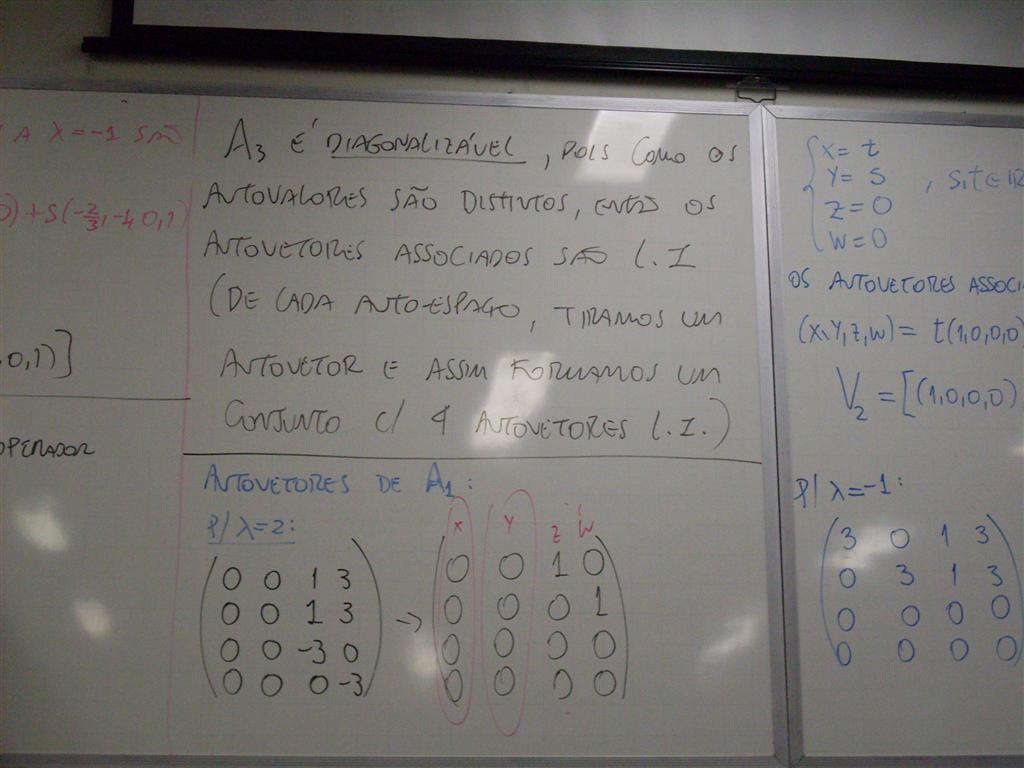 A λ=-1 SÃO
)+S(-2/3,-1,0,1)
,0,1)]
OPERADOR
A₃ É DIAGONALIZÁVEL, POIS COMO OS
AUTOVALORES SÃO DISTINTOS, ENTÃO OS
AUTOVETORES ASSOCIADOS SÃO L.I
(DE CADA AUTO-ESPAÇO, TIRAMOS UM
AUTOVETOR E ASSIM FORMAMOS UM
CONJUNTO C/ 4 AUTOVETORES L.I.)
AUTOVETORES DE A₁:
P/ λ=2:
0 0 1 3
0 0 1 3
0 0 -3 0
0 0 0 -3
→
X Y Z W
0 0 1 0
0 0 0 1
0 0 0 0
0 0 0 0
X= t
Y= S , S,t∈IR
Z=0
W=0
OS AUTOVETORES ASSOCI
(X,Y,Z,W)= t(1,0,0,0)
V₂=[(1,0,0,0)
P/ λ=-1:
3 0 1 3
0 3 1 3
0 0 0 0
0 0 0 0